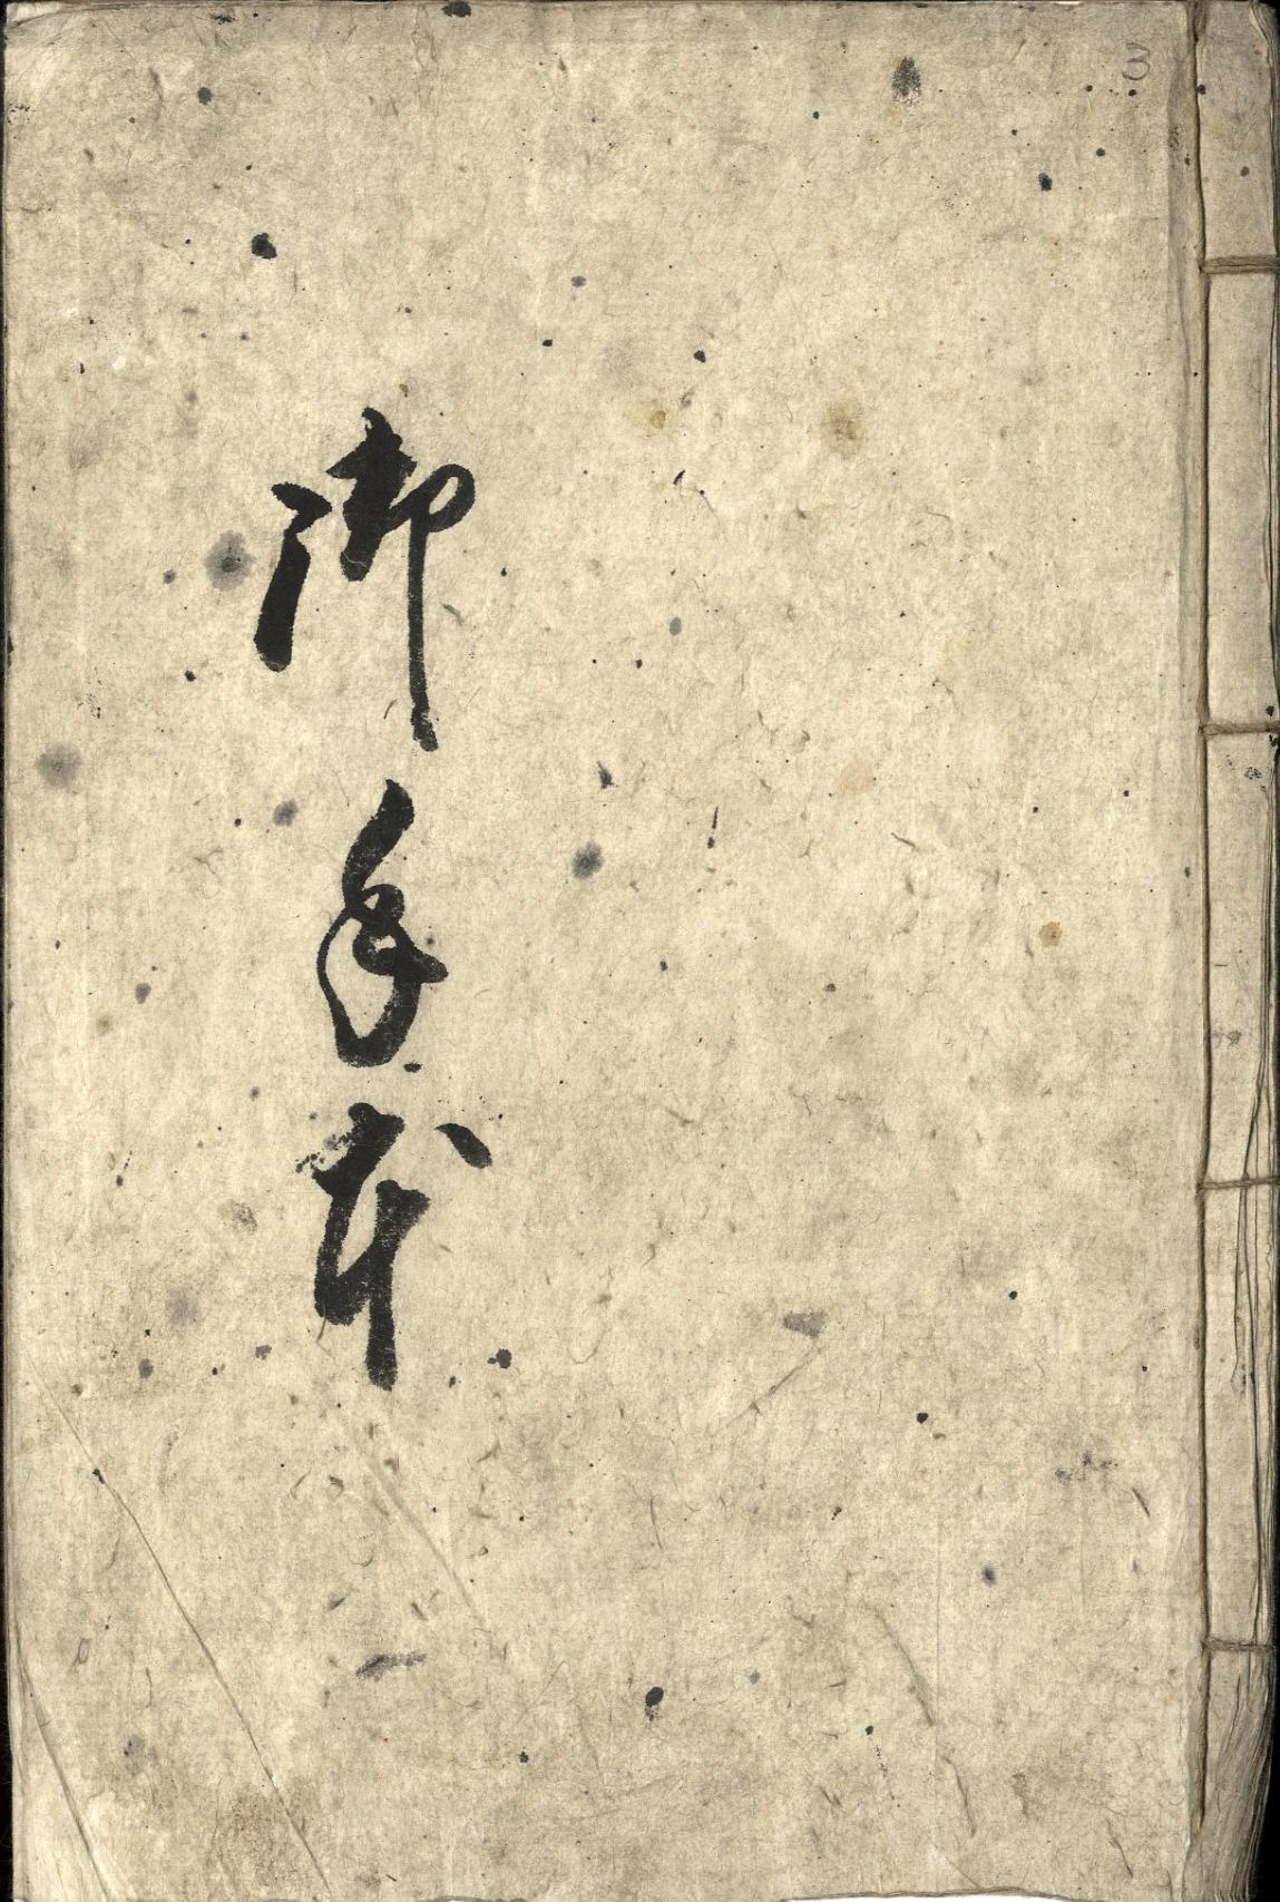 御手本
3